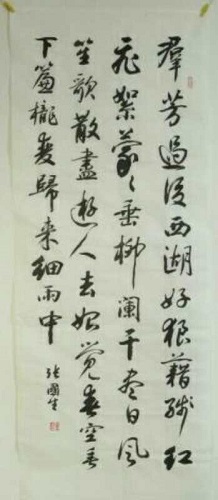 群芳過後西湖好狼藉殘紅
飛絮蒙〻垂柳闌干盡日風
笙歌散盡遊人去始覺春空垂
下簾櫳雙歸来細雨中
張國生